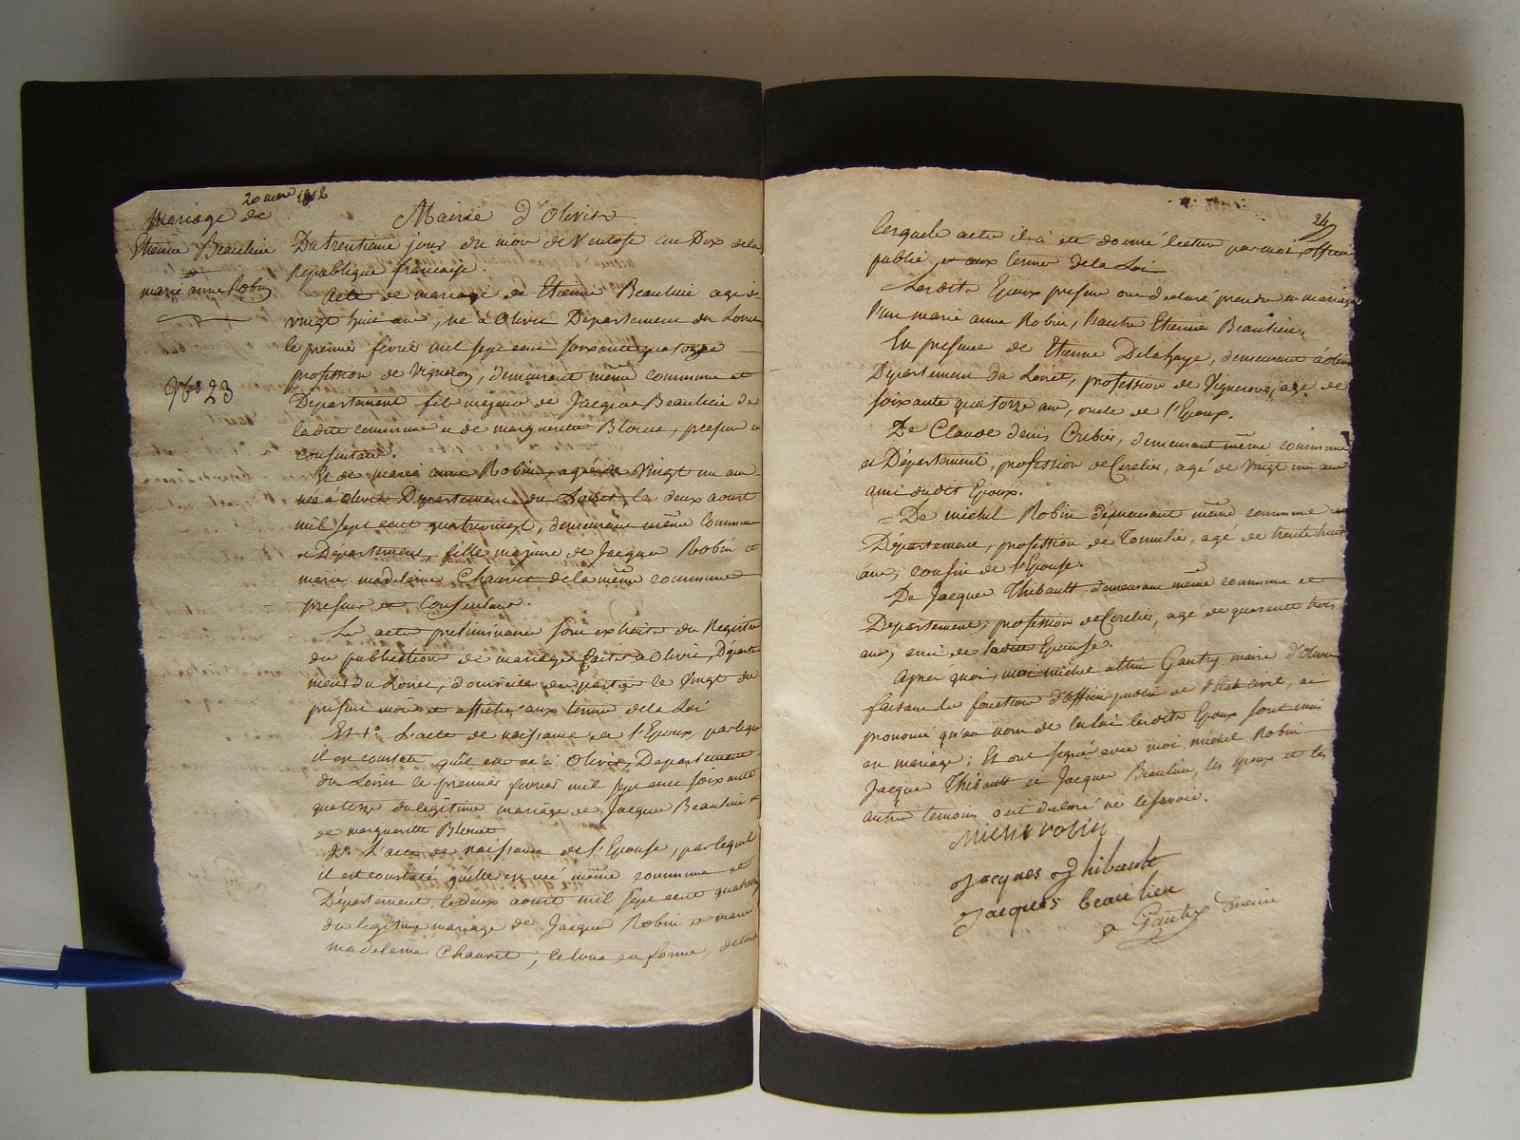 20 mars 1802
Mariage de
Etienne Beaulieu
et
marie anne Robin
No 23
Mairie d'Olivet
Du trentième jour du mois de Ventose an Dix de la
République française.
Acte de mariage de Etienne Beaulieu agé de
vingt huit ans, né à Olivet Département du Loiret
le premier février mil sept cent soixante quatorze
profession de Vigneron, demeurant même commune et
Département fils majeur de Jacques Beaulieu de
ladite commune et de marguerite present et
consentant.
Et de marie anne Robin, agée de Vingt un ans
née à olivet Département du Loiret, le deux aoust
mil sept cent quatrevingt, demeurant même Commune
et Département, fille majeure de Jacques Robin et
marie madeleine Chauvet de la même commune
present et Consentant.
Les actes preliminaires sont extraits du Registre
de publication de mariages faites à Olivet, Départe
ment du Loiret, le Vingt du
present mois et affichés aux termes de la Loi
Et 1o L'acte de naissance de l'Epoux, par lequel
il est constaté qu'il est né à Olivet, Departement
du Loiret le premier fevrier mil sept cent soixante
quatorze du legitime mariage de Jacques Beaulieu et
de marguerite
2o L'acte de naissance de l'Epouse, par lequel
il est constaté qu'elle est née même commune et
Département le deux aoust mil sept cent quatrevingt
du legitime mariage de Jacques Robin et marie
madeleine Chauvet, le tout en forme, de tous
24
lesquels actes il a été donné lecture par moi officier
public, et aux termes de la Loi
Lesdits Epoux present ont declaré prendre en mariage
l'un marie anne Robin, l'autre Etienne Beaulieu,
En presence de Etienne Delahaye, demeurant à olivet
Département du Loiret, profession de Vigneron, agé de
soixante quatorze ans, oncle de l'Epoux.
De Claude denis demeurant même commune
et Département, profession de agé de vingt ans
ami dudit Epoux.
De michel Robin demeurant même commune et
Département, profession de Tonnelier, agé de trente huit
ans, cousin de l'Epouse.
De Jacques Thibault demeurant même commune et
Département, profession de agé de quarante trois
ans, ami de ladite Epouse.
Après quoi, moi michel Gautry maire d'olivet
faisant les fonctions d'officier public de l'état civil, ai
prononcé qu'au nom de la loi lesdits Epoux sont unis
en mariage; Et ont signé avec moi michel Robin
Jacques Thibault et Jacques Beaulieu, les epoux et les
autres temoins ont declaré ne le savoir.
Michel robin
Jacques Thibault
Jacques beaulieu
Gautry maire